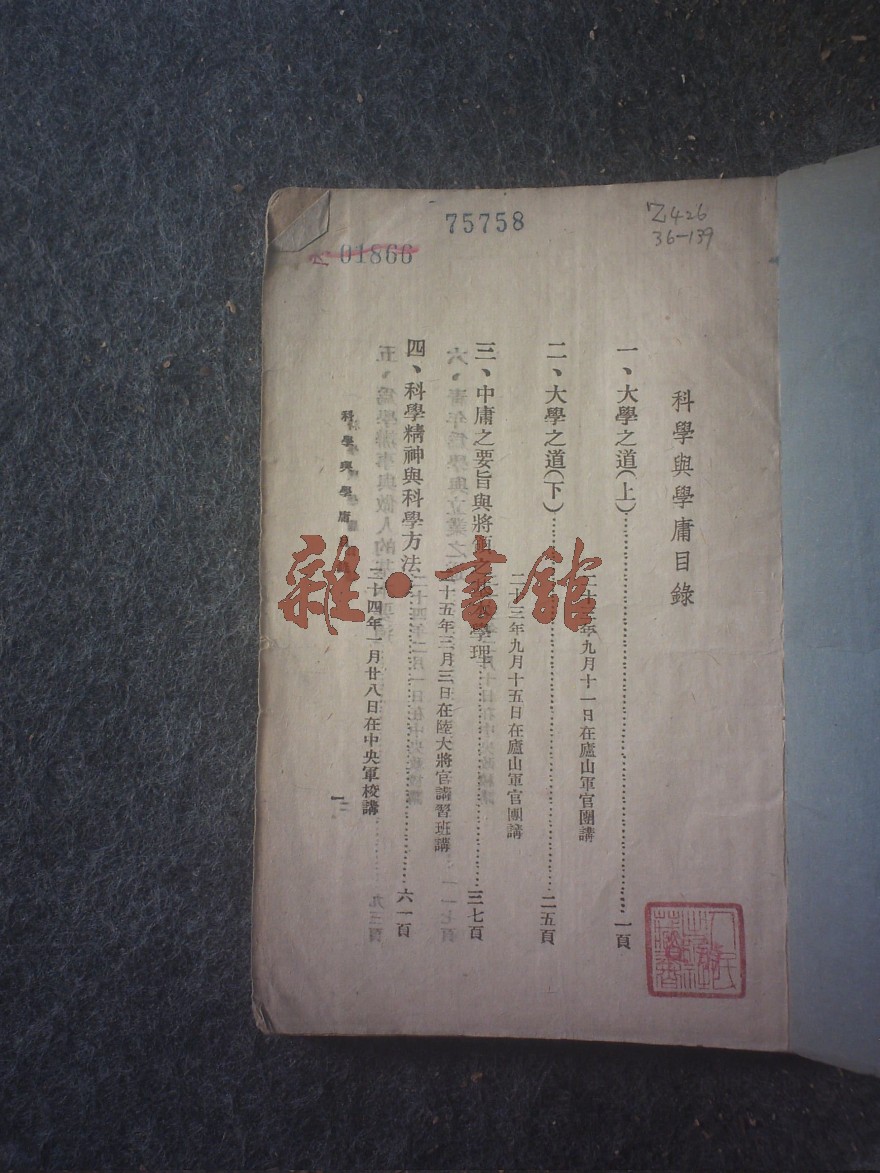 75758
01866
Z426
36-139
科學與學庸目錄
一、大學之道(上)……一頁
年九月十一日在廬山軍官團講
二、大學之道(下)……二五頁
二十三年九月十五日在廬山軍官團講
三、中庸之要旨與將 學理……三七頁
十五年三月三日在陸大將官講習班講
四、科學精神與科學方法……六一頁
二十四年一月廿八日在中央軍校講
科學與學庸
一
雜·書館